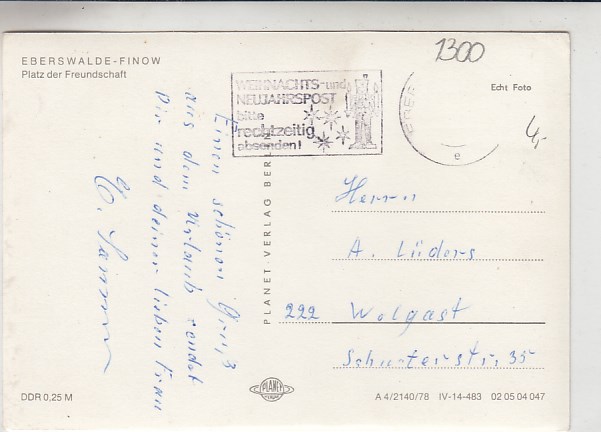 EBERSWALDE-FINOW
Platz der Freundschaft
1300
WEIHNACHTS- und
NEUJAHRSPOST
bitte
rechtzeitig
absenden!
EBER
e
Echt Foto
4,-
Einen schönen Gruß
aus dem Urlaub sendet
Dir und deiner lieben Frau
PLANET-VERLAG BERL
Herrn
A. Lüders
222 Wolgast
Schusterstr. 35
DDR 0,25 M
PLANET
A 4/2140/78 IV-14-483 02 05 04 047